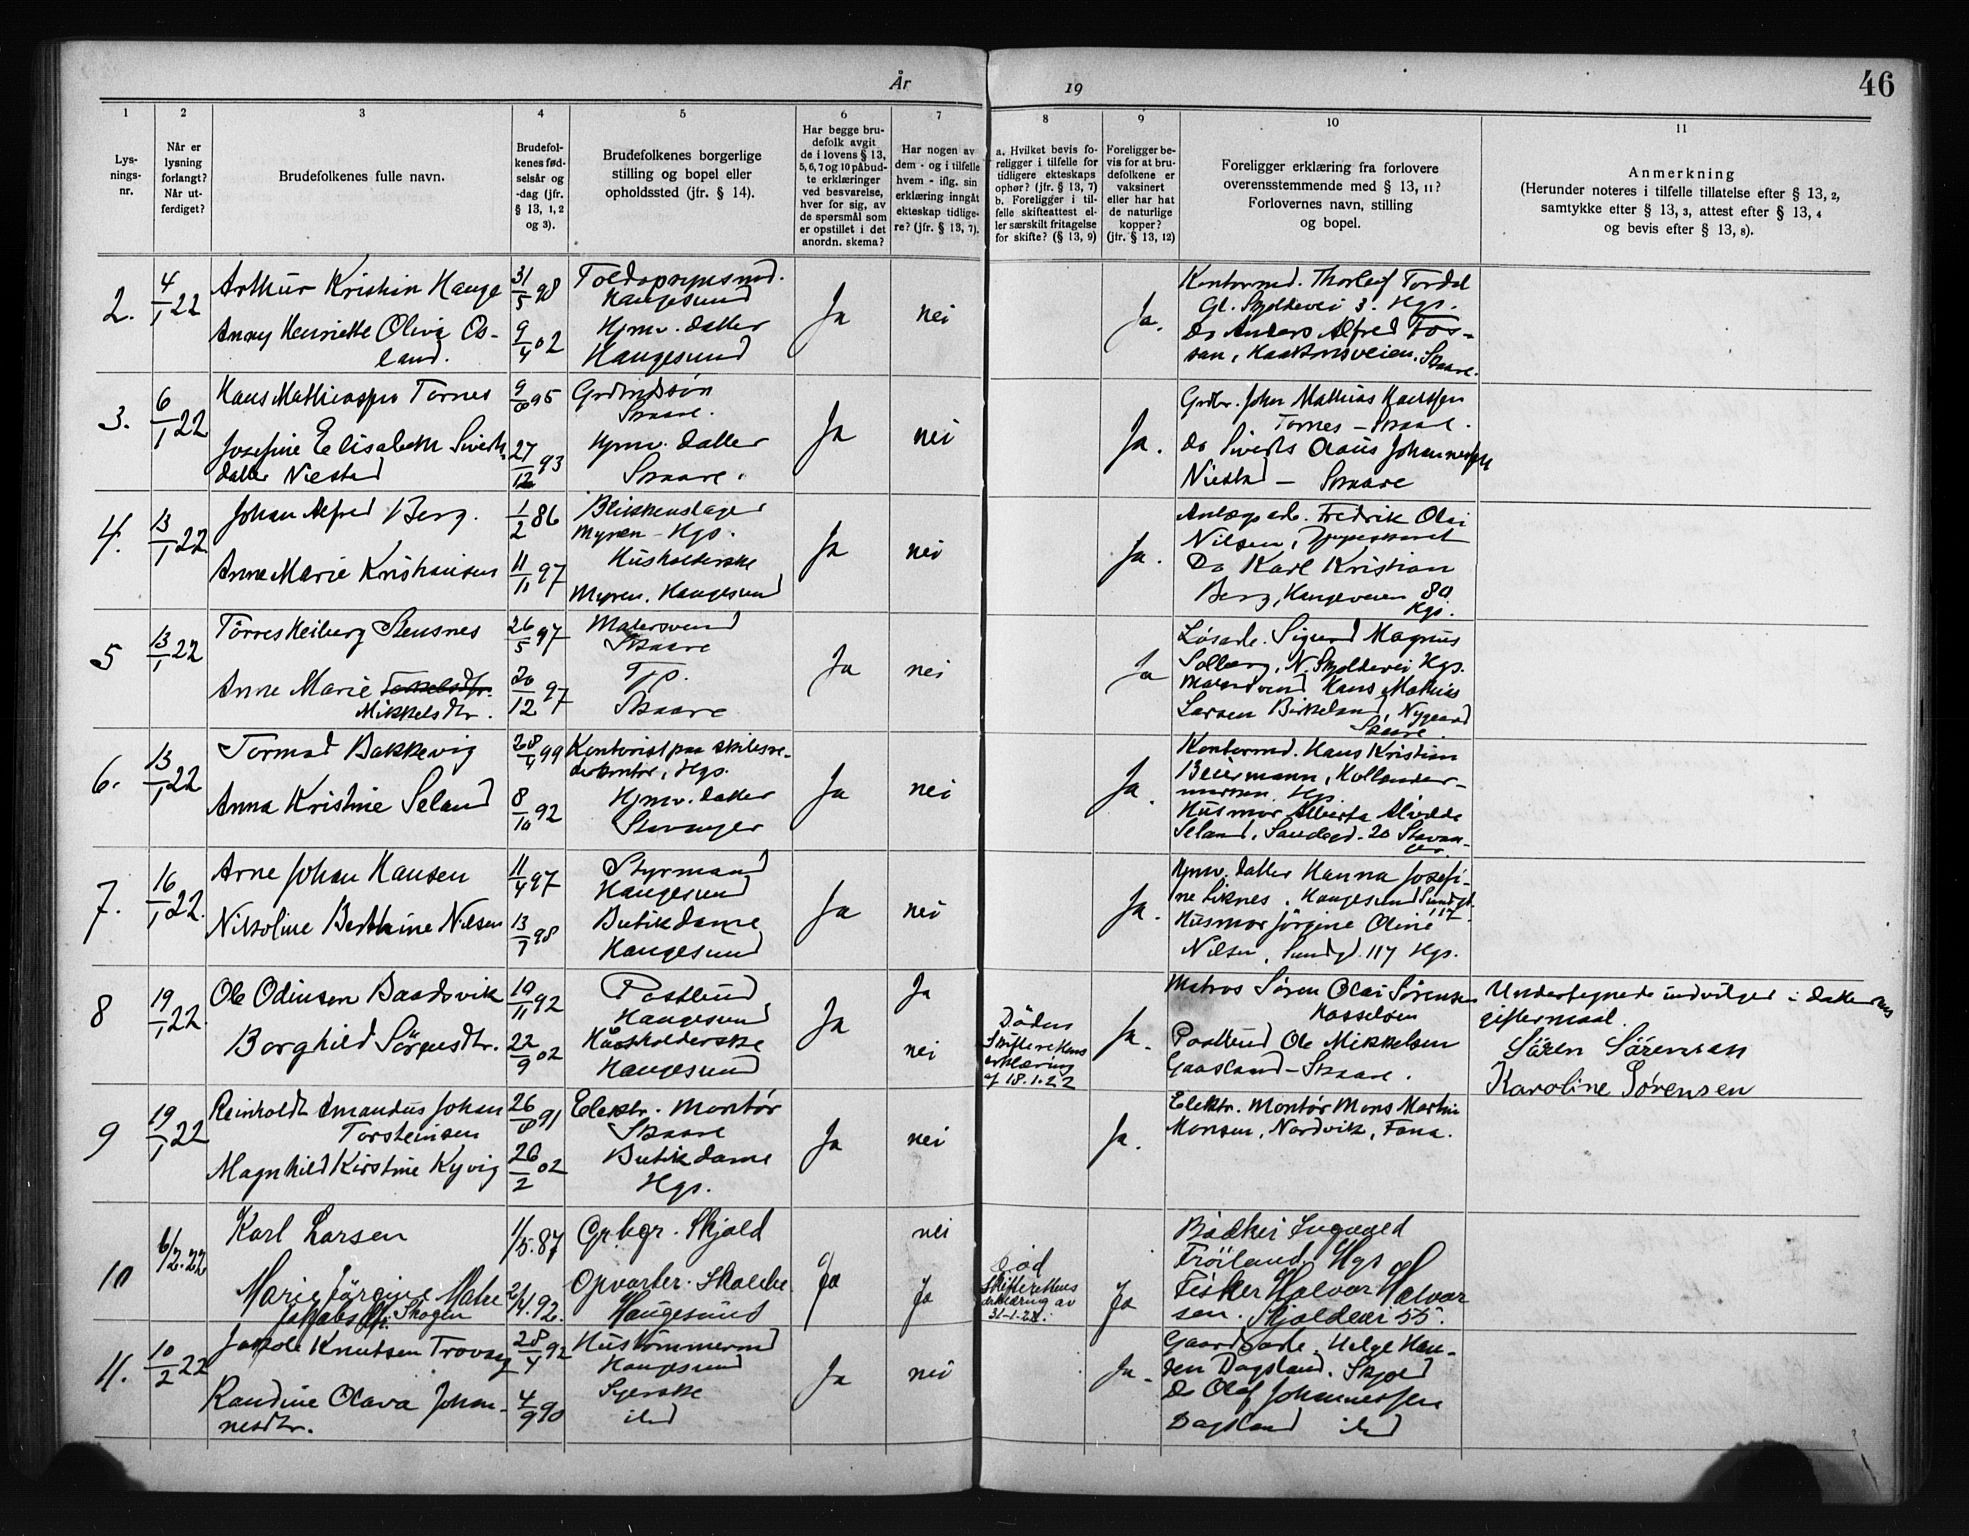 År 19
46
1 2 3 4 5 6 7 8 9 10 11
Lys-
nings-
nr.
Når er
lysning
forlangt?
Når ut-
ferdiget?
Brudefolkenes fulle navn.
Brudefol-
kenes fød-
selsår og
-dag (jfr.
§ 13, 1, 2
og 3).
Brudefolkenes borgerlige
stilling og bopel eller
opholdssted (jfr. § 14).
Har begge bru-
defolk avgit
de i lovens § 13,
5, 6, 7 og 10 påbud-
te erklæringer
ved besvarelse,
hver for sig, av
de spørsmål som
er opstillet i det
anordn. skema?
Har nogen av
dem - og i tilfelle
hvem - iflg. sin
erklæring inngåt
ekteskap tidlige-
re? (jfr. § 13, 7).
a. Hvilket bevis fo-
religger i tilfelle for
tidligere ekteskaps
ophør? (jfr. § 13, 7)
b. Foreligger i til-
felle skifteattest el-
ler særskilt fritagelse
for skifte? (§ 13, 9)
Foreligger be-
vis for at bru-
defolkene er
vaksinert
eller har hat
de naturlige
kopper?
(jfr. § 13, 12)
Foreligger erklæring fra forlovere
overensstemmende med § 13, 11?
Forlovernes navn, stilling
og bopel.
Anmerkning
(Herunder noteres i tilfelle tillatelse efter § 13, 2,
samtykke efter § 13, 3, attest efter § 13, 4
og bevis efter § 13, 8).
2. 4/1 22
Arthur Kristian Hauge 31/5 98
Haugesund
Anny Henriette Olivia Os-
land. 9/4 02
Hjmv. datter
Haugesund
Ja nei Ja.
Kontormd. Thorleif Tordal
Gl. Skjoldevei 3. Hgs.
Do Anders Alfred Fos-
san, Haakonsveien. Skaare.
3. 6/1 22
Hans Mathiassen Tornes
Grdmdsøn
Skaare.
Josefine Elisabeth Siverts-
datter Niestad 27/12 93
Hjmv. datter
Skaare.
Ja nei Ja.
Grdbr. Johan Mathias
Tornes - Skaare.
do Siverts Claus Johannessen
Niestad - Skaare
4. 13/1 22
Johan Alfred Berg. 1/2 86
Blikkenslager
Myren - Hgs.
Anne Marie Kristiansen 11/11 97
Husholderske
Myren. Haugesund
Ja nei Ja.
Anlægsarb. Fredrik Olai
Nilsen,
Do Karl Kristian
Berg, Haugeveien 80
Hgs.
5 13/1 22
Tørres Heiberg Stensnes 26/5 97
Malersvend
Skaare
Anne Marie
Mikkelsdtr. 20/12 97
Tjp.
Skaare
Ja nei Ja
Løsarb. Sigurd Magnus
Solberg, N. Skjoldevei Hgs.
Malersvend Hans Mathias
Larsen Birkeland, Nygaard
Skaare.
6. 13/1 22
Tormod Bakkevig 28/4 99
Kontorist paa skibsre-
derkontor, Hgs.
Anna Kristine Seland 8/10 92
Hjmv. datter
Stavanger
Ja nei Ja.
Kontormd. Hans Kristian
Beiermann, Hollender-
Hgs.
Husmor Alberta
Seland, Sandsgd. 20 Stavan-
ger.
7. 16/1 22.
Arne Johan Hansen 11/4 97
Styrmand
Haugesund
Nikoline Berthine Nilsen
Butikdame
Haugesund
Ja nei Ja.
Hjmv. datter Hanna Josefi-
ne Liknes, Haugesund Sundgt. 117
Husmor Jørgine Oline
Nilsen, Sundgd. 117 Hgs.
8 19/1 22.
Ole Odinsen Baadsvik 10/11 92
Postbud
Haugesund
Ja
Borghild Sörensdtr. 22/9 02
Husholderske
Haugesund
Ja nei
Døden
Skifterettens
erklæring
af 18.1.22
Ja.
Matros Søren Olai Sørensen
Hasseløen
Postbud Ole Mikkelsen
Gaasland - Skaare.
Undertegnede indvilger i datterens
giftermaal.
Sören Sörensen
Karoline Sørensen
9 19/1 22
Reinholdt Amandus Johan
Torsteinsen 26/8 91
Elektr. Montør
Skaare
Magnhild Kirstine Kyvig 26/2 02
Butikdame
Hgs.
Ja nei Ja.
Elektr. Montør Mons Martin
Monsen, Nordvik, Fana.
10 6/2.22
Karl Larsen 1/5.87
Gpbgr. Skjold
nei
Marie Jörgine Malene
Jakobsdtr. Skogen 2/4.92.
Opvarter. Skaare
Haugesund
Ja Ja
Død
Skifterettens
erklæring av
31-1-22.
Ja
Bødker Ingvald
Frøiland, Hgs
Fisker Halvor Halvor
sen. Skjoldevei 55.
11. 10/2 22
Jakob Knutsen Trovaag 28/4 92
Hustømmermd
Haugesund
Randine Olava Johan-
nesdtr. 4/9 90
Syerske
ibd
Ja nei Ja.
Gaardarb. Helge Han-
sen Dagsland. Skjold
Do Olaf Johannessen
Dagsland ibd